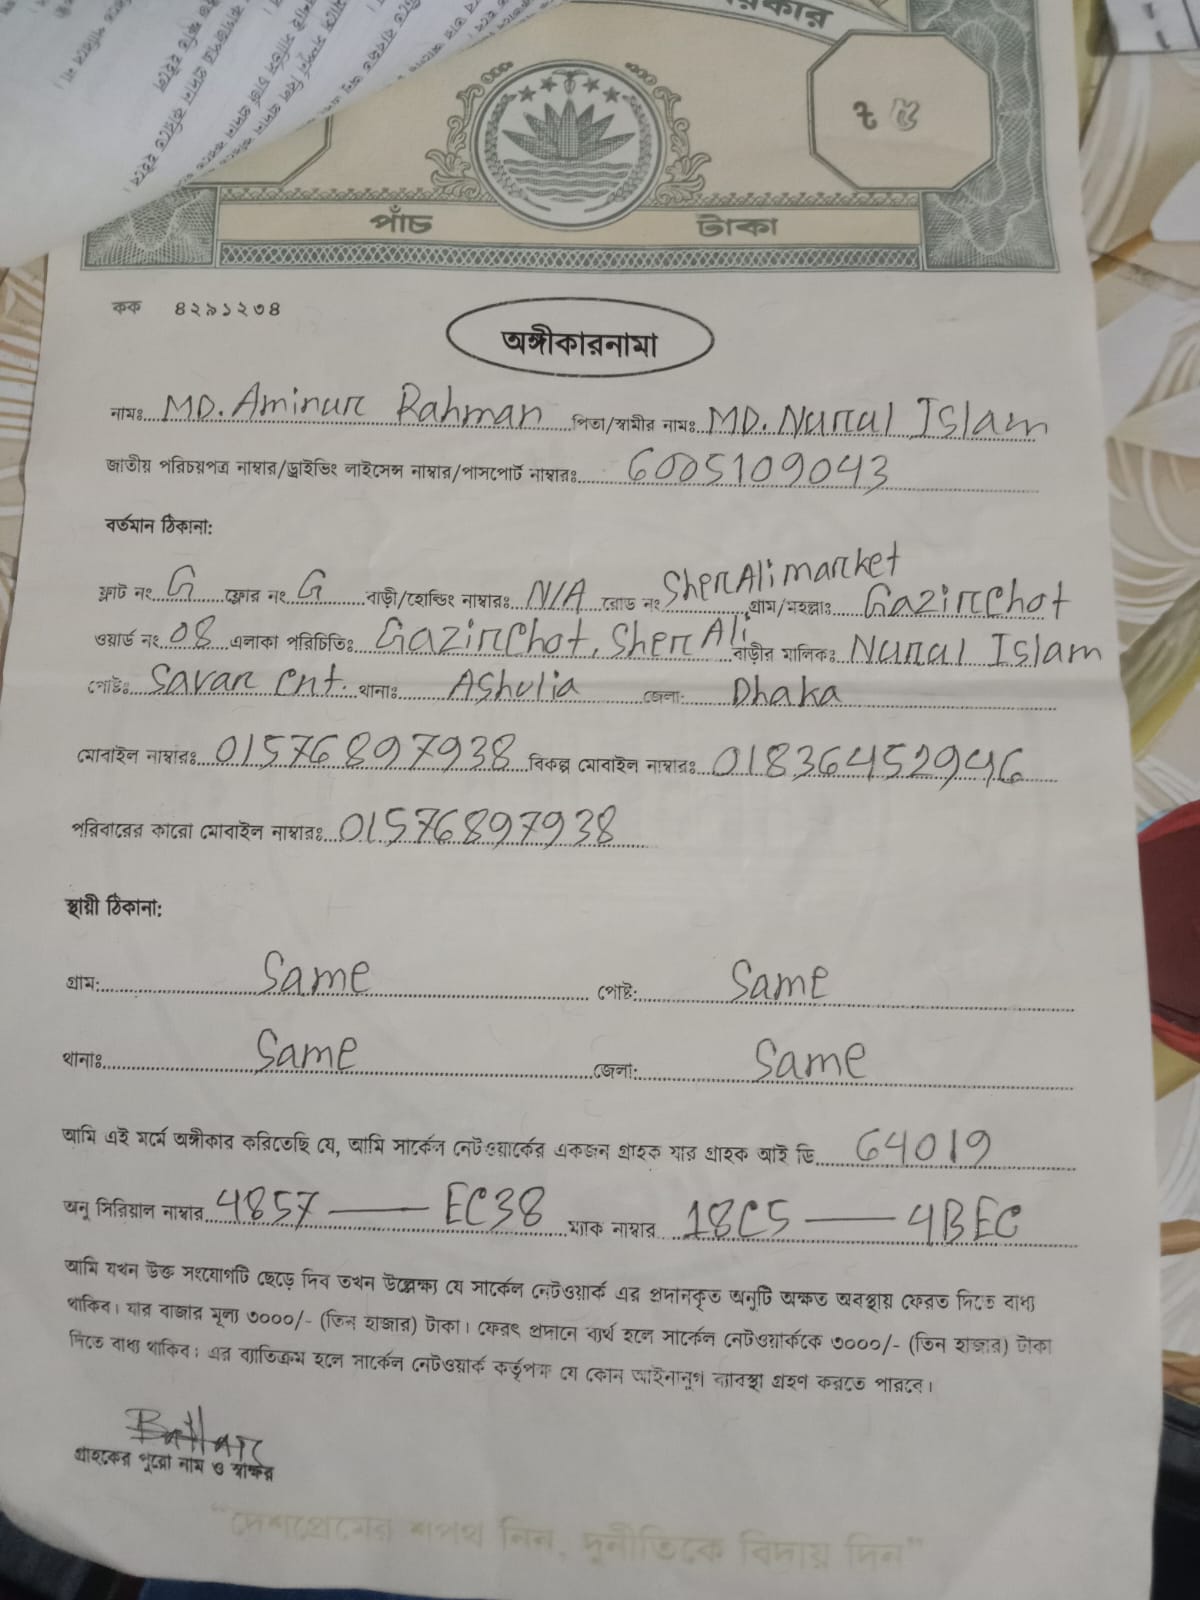 পাঁচ টাকা
কক ৪২৯১২৩৪
অঙ্গীকারনামা
নামঃ MD. Aminur Rahman পিতা/স্বামীর নামঃ MD. Nurul Islam
জাতীয় পরিচয়পত্র নাম্বার/ড্রাইভিং লাইসেন্স নাম্বার/পাসপোর্ট নাম্বারঃ 6005109043
বর্তমান ঠিকানা:
ফ্লাট নং G ফ্লোর নং G বাড়ী/হোল্ডিং নাম্বারঃ N/A রোড নং Sher Ali market গ্রাম/মহল্লাঃ Gazirchot
ওয়ার্ড নং 08 এলাকা পরিচিতিঃ Gazirchot, Sher Ali, বাড়ীর মালিকঃ Nurul Islam
পোষ্টঃ Savar Cnt. থানাঃ Ashulia জেলা: Dhaka
মোবাইল নাম্বারঃ 01576897938 বিকল্প মোবাইল নাম্বারঃ 01836452946
পরিবারের কারো মোবাইল নাম্বারঃ 01576897938
স্থায়ী ঠিকানা:
গ্রাম: Same পোষ্ট: Same
থানাঃ Same জেলা: Same
আমি এই মর্মে অঙ্গীকার করিতেছি যে, আমি সার্কেল নেটওয়ার্কের একজন গ্রাহক যার গ্রাহক আই ডি 64019
অনু সিরিয়াল নাম্বার 4857 — EC38 ম্যাক নাম্বার 18C5 — 4BEC
আমি যখন উক্ত সংযোগটি ছেড়ে দিব তখন উল্লেক্ষ্য যে সার্কেল নেটওয়ার্ক এর প্রদানকৃত অনুটি অক্ষত অবস্থায় ফেরত দিতে বাধ্য
থাকিব। যার বাজার মূল্য ৩০০০/- (তিন হাজার) টাকা। ফেরৎ প্রদানে ব্যর্থ হলে সার্কেল নেটওয়ার্ককে ৩০০০/- (তিন হাজার) টাকা
দিতে বাধ্য থাকিব। এর ব্যাতিক্রম হলে সার্কেল নেটওয়ার্ক কর্তৃপক্ষ যে কোন আইনানুগ ব্যাবস্থা গ্রহণ করতে পারবে।
গ্রাহকের পুরো নাম ও স্বাক্ষর
“দেশপ্রেমের শপথ নিন, দুর্নীতিকে বিদায় দিন”